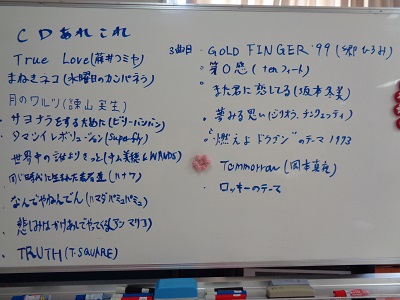 CDあれこれ
True Love(藤井フミヤ)
まねきネコ(水曜日のカンパネラ)
月のワルツ(諫山実生)
サヨナラをするために(ビリーバンバン)
タマシイレボリューション(Superfly)
世界中の誰よりきっと(中山美穂&WANDS)
同じ時代に生まれた若者達(ハナワ)
なんでやねんでん(ハマダバミュバミュ)
悲しみはかけあしでやってくる(アン マリコ)
TRUTH(T-SQUARE)
3曲目・GOLD FINGER '99(郷ひろみ)
・第0感(10フィート)
・また君に恋してる(坂本冬美)
・夢みる思い(ジリオラ、チンクェッティ)
・"燃えよドラゴン"のテーマ 1973
・Tommorrow(岡本真夜)
・ロッキーのテーマ